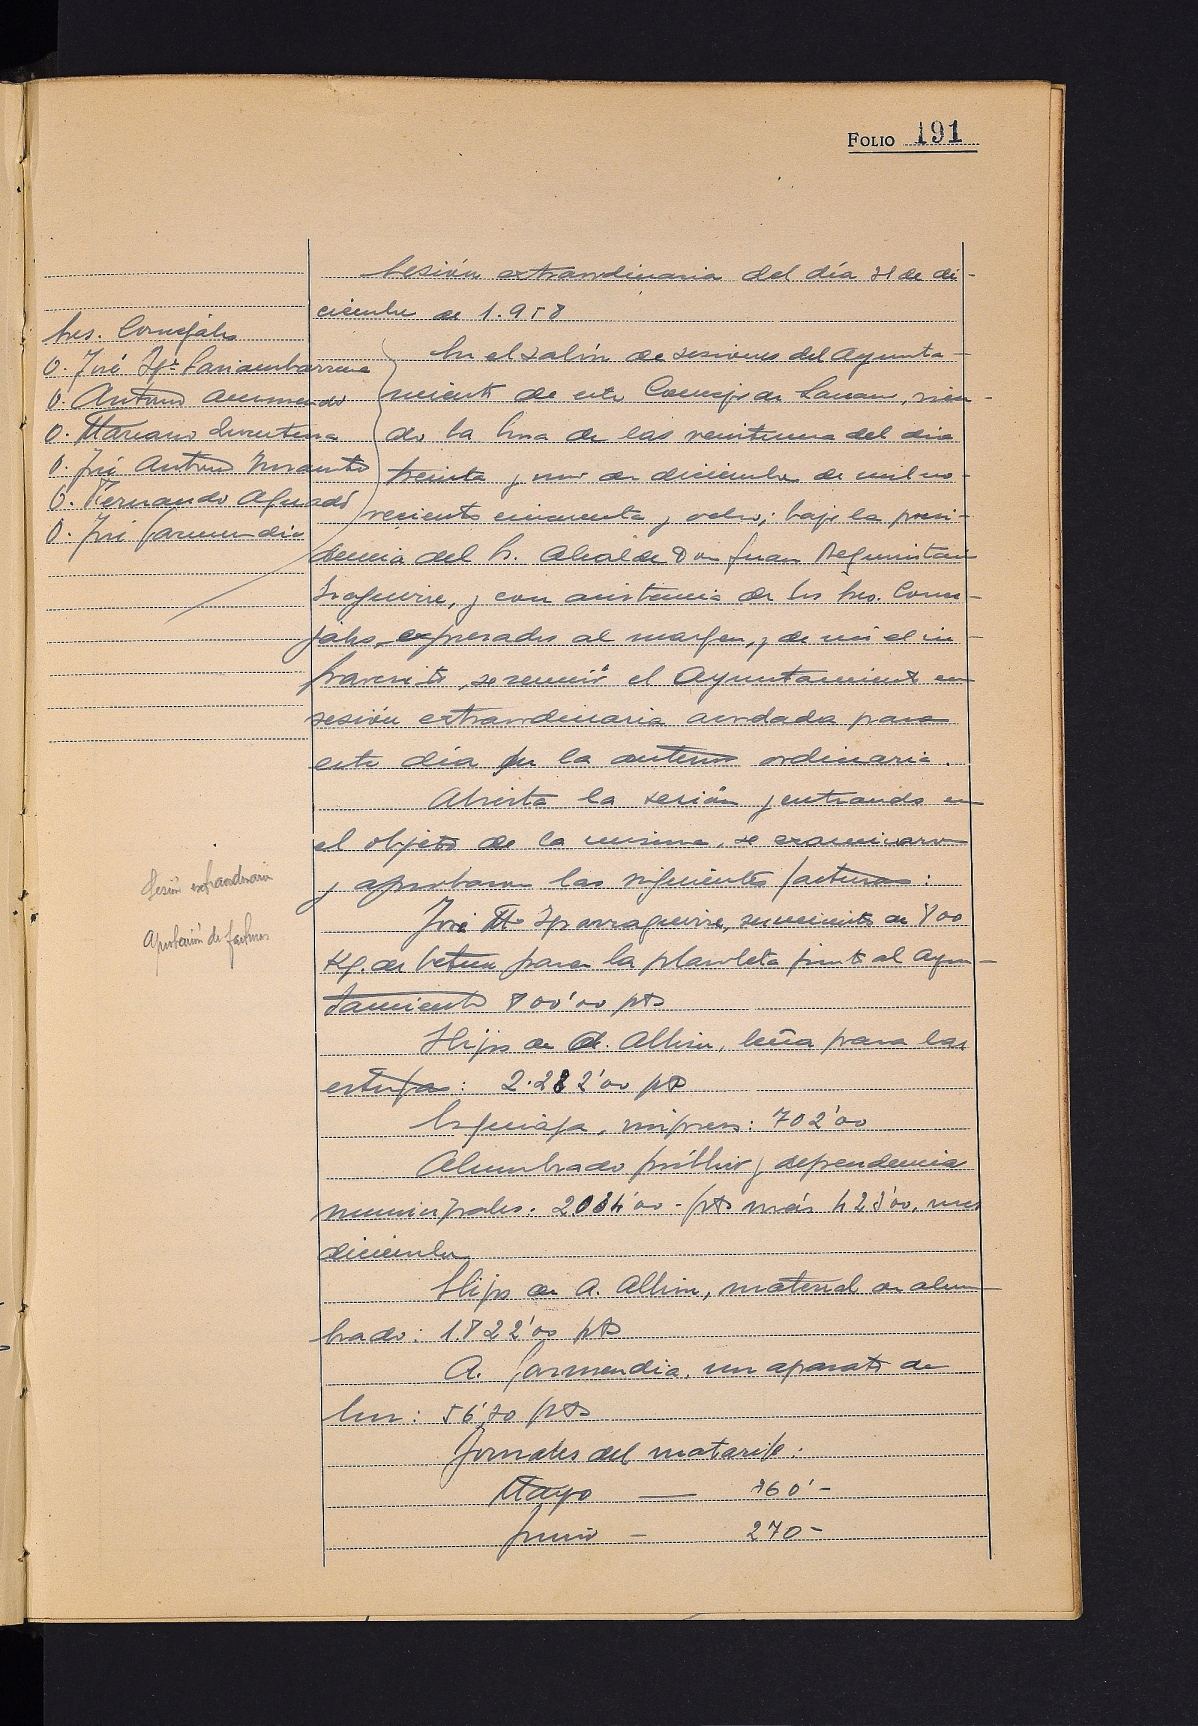 FOLIO 191
Sesión extraordinaria del día 31 de di-
ciembre de 1.958
Sres. Concejales
D. José
D. Antonio
D. Mariano
D. José Antonio
D. Fernando Aguado
D. José Garmendia
En el salón de sesiones del Ayunta-
miento de este Concejo de, sien-
do la hora de las veintiuna del día
treinta y uno de diciembre de mil no-
vecientos cincuenta y ocho; bajo la presi-
dencia del Sr. Alcalde Don Juan Beguiristain
y con asistencia de los Sres. Conce-
jales expresados al margen, y de mí el in-
frascrito, se reunió el Ayuntamiento en
sesión extraordinaria acordada para
este día en la anterior ordinaria.
Abierta la sesión y entrando en
el objeto de la misma, se examinaron
y aprobaron las siguientes facturas:
Sesión extraordinaria
Aprobación de facturas
José Mª Iparraguirre, suministro de 800
Kg. de betun para la plazoleta junto al Ayun-
tamiento 800'00 pts
Hijos de A. Albisu, leña para las
estufas: 2.282'00 pts
impresos: 702'00
Alumbrado público y dependencia
municipales. 2084'00 - pts más 423'00, mes
diciembre
Hijos de A. Albisu, material de alum-
brado: 1.822'00 pts
A. Garmendia, un aparato de
luz: 56'70 pts
Jornales del matarife:
Mayo — 360'-
Junio - 270-